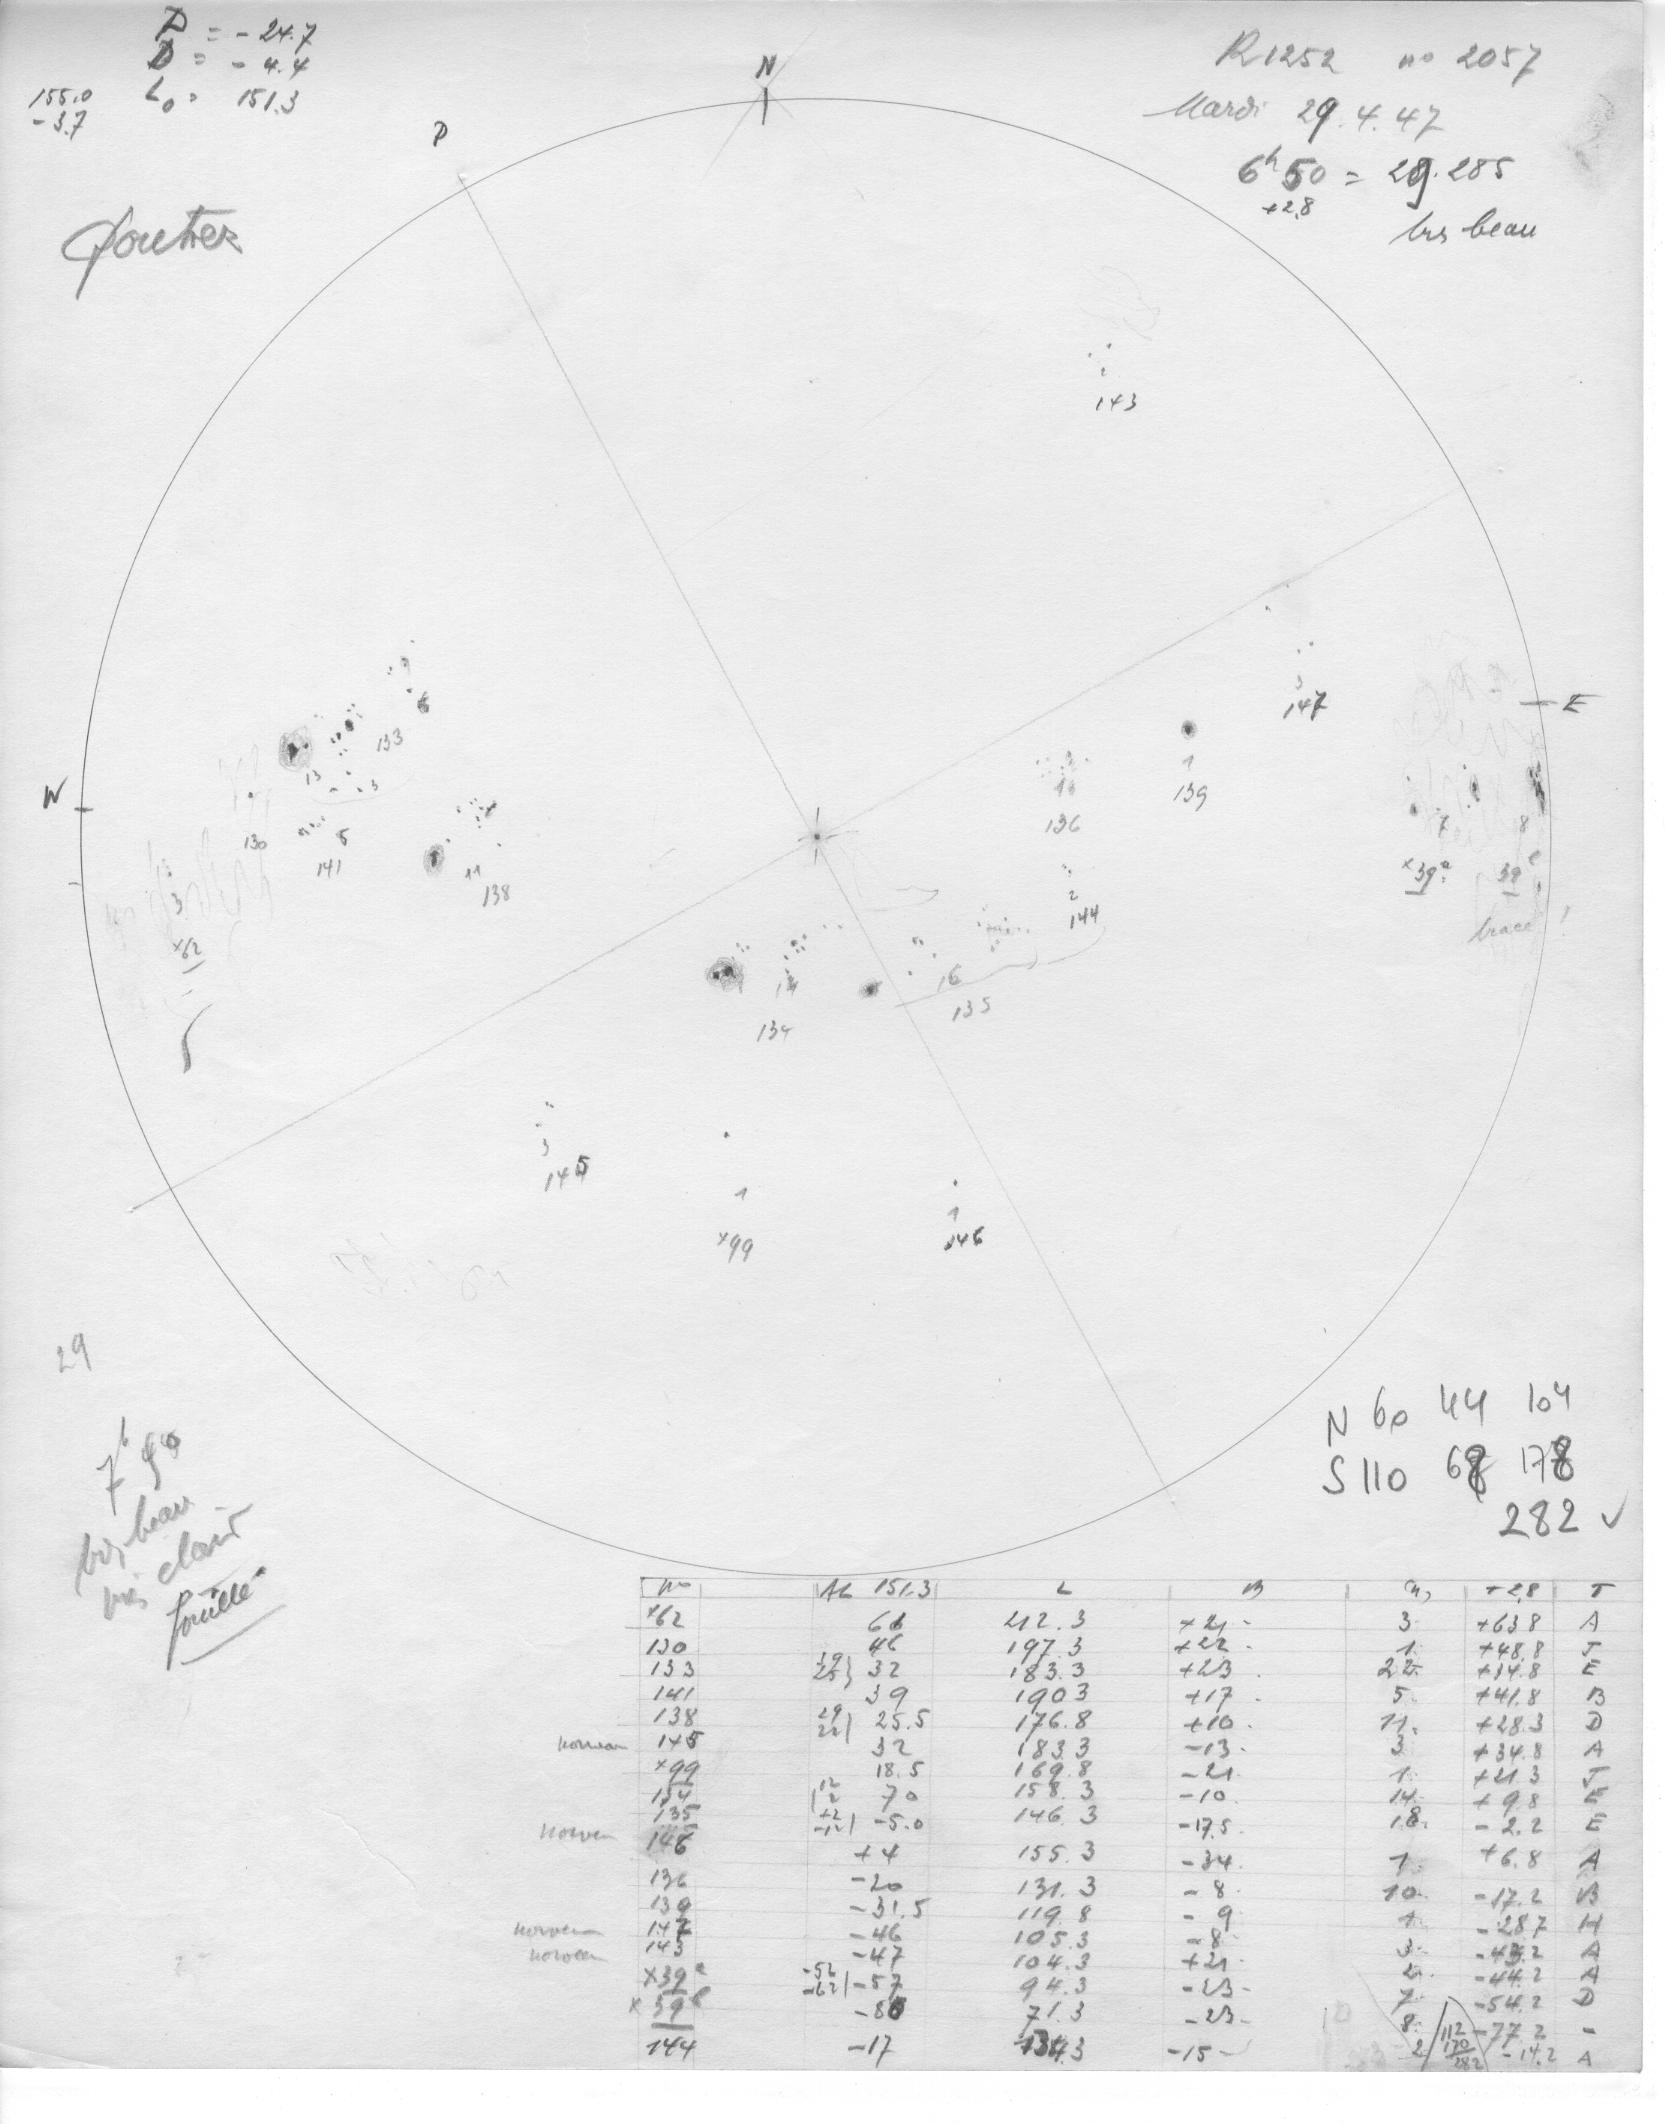 P = - 24.7
D = - 4.4
155.0 L₀ = 151.3
- 3.7
R1252 no 2057
Mardi 29.4.47
6h 50 = 29.285
+2,8
très beau
N
P
143
E
147
133
6
13
3
W
130
5
141
11
138
1
139
10
136
3
×62
7
8
×39a
39
2
144
16
135
14
134
3
145
1
×99
1
146
29
7h
très beau
très clair
N 60 44 104
S 110 68 178
282 ✓
no AL 151.3 L B +2,8 T
×62 61 212.3 +21 3 +63.8 A
130 46 197.3 +22 1 +48.8 J
133 32 183.3 +23 22 +34.8 E
141 39 190.3 +17 5 +41.8 B
138 29 22 25.5 176.8 +10 11 +28.3 D
nouveau 145 32 183.3 -13 3 +34.8 A
×99 18.5 169.8 -21 1 +21.3 J
134 12 2 70 158.3 -10 14 +9.8 E
135 +2 -12 -5.0 146.3 -17.5 18 -2.2 E
nouveau 146 +4 155.3 -34 1 +6.8 A
136 -20 131.3 -8 10 -17.2 B
139 -31.5 119.8 -9 1 -28.7 H
nouveau 147 -46 105.3 -8 3 -43.2 A
nouveau 143 -47 104.3 +21 2 -44.2 A
×39a -52 -62 -57 94.3 -23 7 -54.2 D
×39 -80 71.3 -23 8 -77.2 -
144 -17 134.3 -15 2 112 170 282 -14.2 A